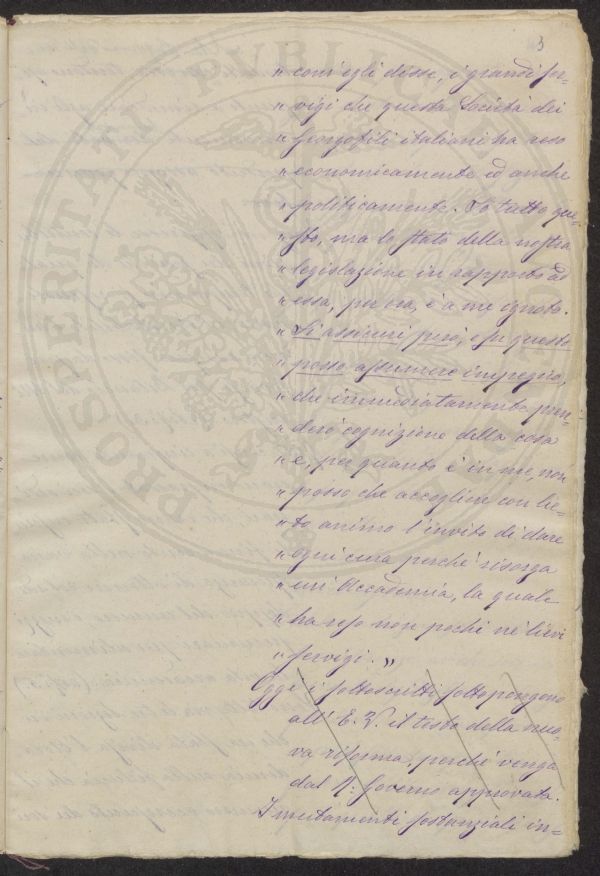 3
" com'egli disse, i grandi ser-
" vigi che questa Società dei
" Georgofili italiani ha reso
" economicamente ed anche
" politicamente. So tutto que-
" sto, ma lo stato della nostra
" legislazione in rapporto ad
" essa, per ora, è a me ignoto.
" Si assicuri però, e su questo
" posso assumere impegno,
" che immediatamente pren-
" derò cognizione della cosa
" e, per quanto è in me, non
" posso che accogliere con lie-
" to animo l'invito di dare
" ogni cura perché risorga
" un' Accademia, la quale
" ha reso non pochi né lievi
" servigi. "
Oggi i sottoscritti sottopongono
all' E. V. il testo della nuo-
va riforma, perché venga
dal R.º Governo approvata.
I mutamenti sostanziali in-
PROSPERITATI PVBLICAE